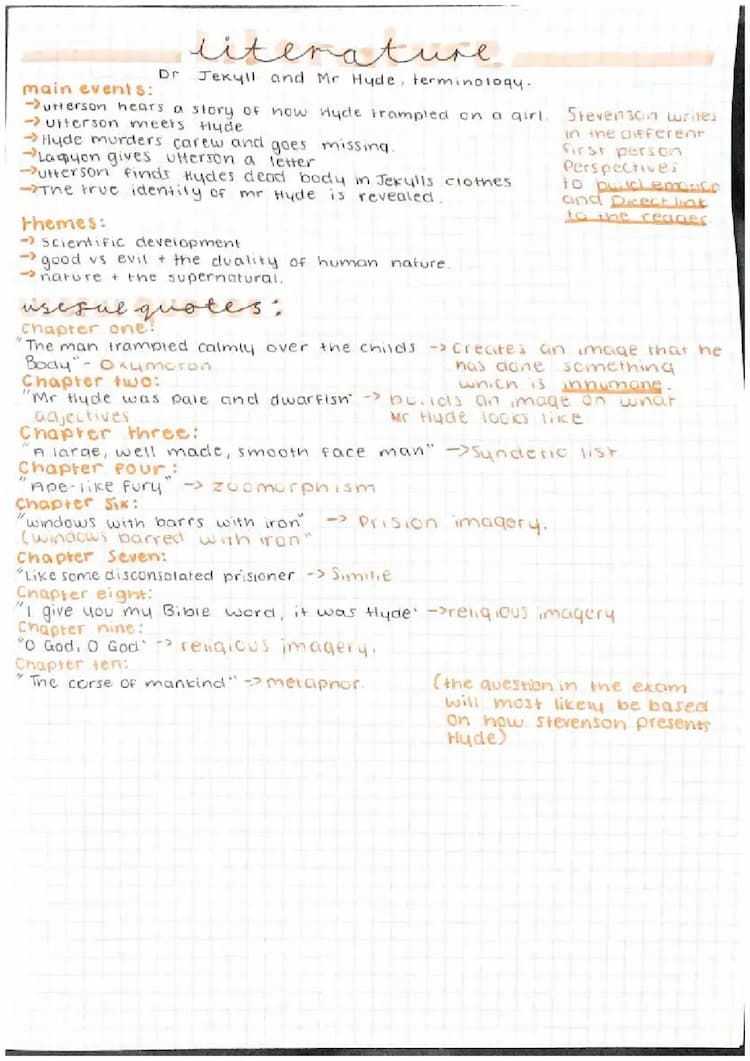 literature
Dr Jekyll and Mr Hyde, terminology.
main events:
→Utterson hears a story of how Hyde trampled on a girl.
→Utterson meets Hyde
→Hyde murders carew and goes missing.
→Lanyon gives Utterson a letter
→Utterson finds Hydes dead body in Jekylls clothes
→The true identity of mr Hyde is revealed.
Stevenson writes
in the different
first person
Perspectives
to build empathy
and Direct link
to the reader
themes:
→ scientific development
→ good vs evil + the duality of human nature.
→ nature + the supernatural.
useful quotes:
Chapter one:
"The man trampled calmly over the childs → creates an image that he
Body" - Oxymoron has done something
which is inhumane.
Chapter two:
"Mr Hyde was pale and dwarfish" → builds an image on what
adjectives Mr Hyde looks like
Chapter three:
"A large, well made, smooth face man" → Syndetic list
Chapter four:
"Ape-like fury" → zoomorphism
Chapter Six:
"windows with barrs with iron" → Prision imagery.
(windows barred with iron"
Chapter Seven:
"Like some disconsolated prisioner → Similie
Chapter eight:
"I give you my Bible word, it was Hyde" → religious imagery
Chapter nine:
"O God, O God" → religious imagery.
Chapter ten:
"The corse of mankind" → metaphor.
(the question in the exam
will most likely be based
on how Stevenson presents
Hyde)